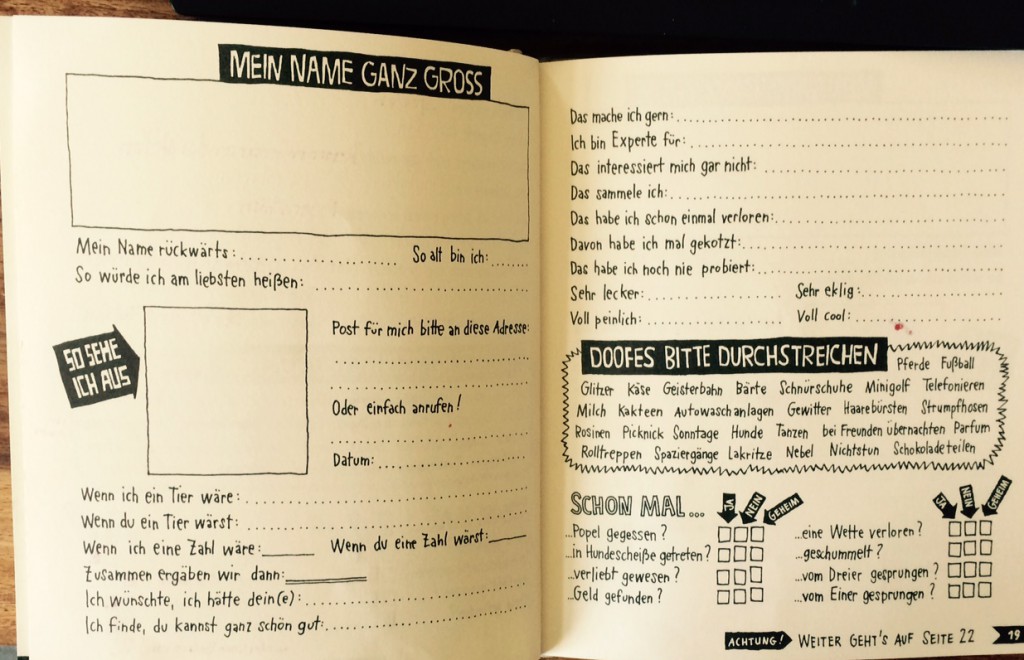 MEIN NAME GANZ GROSS
Mein Name rückwärts: So alt bin ich:
So würde ich am liebsten heißen:
SO SEHE
ICH AUS
Post für mich bitte an diese Adresse:
Oder einfach anrufen!
Datum:
Wenn ich ein Tier wäre:
Wenn du ein Tier wärst:
Wenn ich eine Zahl wäre: Wenn du eine Zahl wärst:
Zusammen ergäben wir dann:
Ich wünschte, ich hätte dein(e):
Ich finde, du kannst ganz schön gut:
Das mache ich gern:
Ich bin Experte für:
Das interessiert mich gar nicht:
Das sammele ich:
Das habe ich schon einmal verloren:
Davon habe ich mal gekotzt:
Das habe ich noch nie probiert:
Sehr lecker: Sehr eklig:
Voll peinlich: Voll cool:
DOOFES BITTE DURCHSTREICHEN Pferde Fußball
Glitzer Käse Geisterbahn Bärte Schnürschuhe Minigolf Telefonieren
Milch Kakteen Autowaschanlagen Gewitter Haarebürsten Strumpfhosen
Rosinen Picknick Sonntage Hunde Tanzen bei Freunden übernachten Parfum
Rolltreppen Spaziergänge Lakritze Nebel Nichtstun Schokolade teilen
SCHON MAL... JA NEIN GEHEIM JA NEIN GEHEIM
...Popel gegessen? ...eine Wette verloren?
...in Hundescheiße getreten? ...geschummelt?
...verliebt gewesen? ...vom Dreier gesprungen?
...Geld gefunden? ...vom Einer gesprungen?
ACHTUNG! WEITER GEHT'S AUF SEITE 22 19